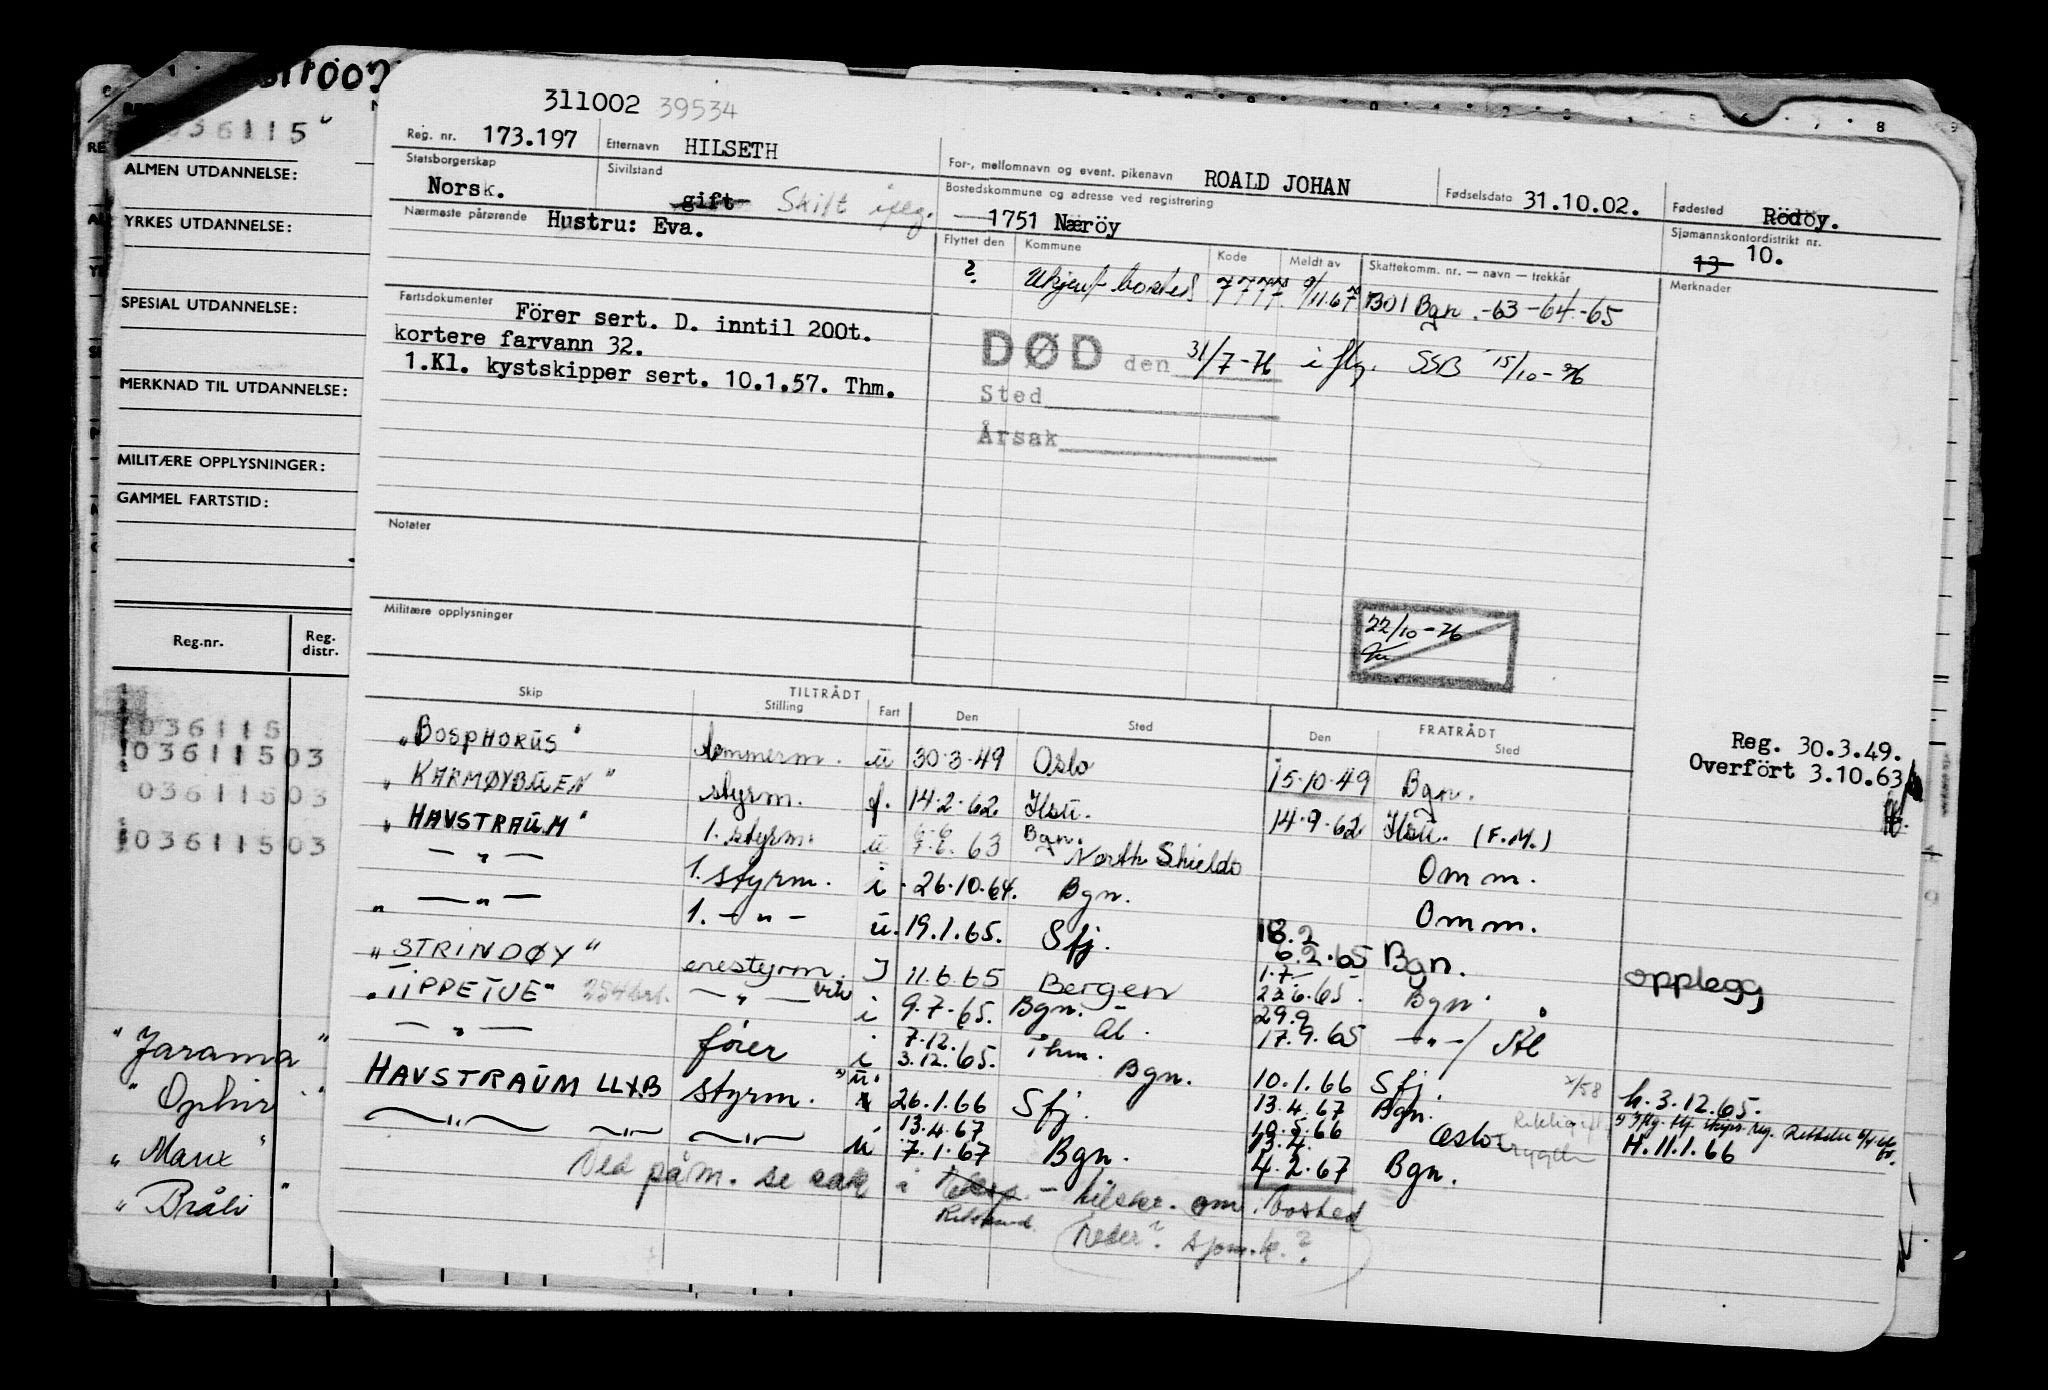 311002 39534
Reg. nr. 173.197 Etternavn HILSETH For-, mellomnavn og event. pikenavn ROALD JOHAN Fødselsdato 31.10.02. Fødested Rödöy.
Statsborgerskap Norsk. Sivilstand gift Skilt iflg. Bostedskommune og adresse ved registrering 1751 Næröy Sjømannskontordistrikt nr. 13 10.
Nærmeste pårørende Hustru: Eva. Flyttet den Kommune Kode Meldt av Skattekomm. nr. — navn — trekkår Merknader
? Ukjent bosted 7777 9/11.67 1301 Bgn. -63-64-65
Fartsdokumenter Förer sert. D. inntil 200t.
kortere farvann 32.
1.Kl. kystskipper sert. 10.1.57. Thm.
DØD den 31/7-76 iflg. SSB 15/10-76
Sted
Årsak
Notater
Militære opplysninger
22/10-76
Skip TILTRÅDT Stilling Fart Den Sted FRATRÅDT Den Sted
Reg. 30.3.49.
Overfört 3.10.63
"BOSPHORUS" tømmerm. u 30.3.49 Oslo 15.10.49 Bgn.
"KARMØYBUEN" styrm. f. 14.2.62 Hsu. 14.9.62 Hsu. (F.M.)
"HAVSTRAUM" 1. styrm. u 63 Bgn. North Shields Omm.
— " — 1. styrm. i 26.10.64. Bgn. Omm.
" — " — 1. — " — u. 19.1.65. Sfj. 18.2 6.2.65 Bgn. opplegg
"STRINDØY" enestyrm. I 11.6.65 Bergen 1.7 23.6.65. Bgn.
"TIPPETUE" 254brt. — " — vik i 9.7.65. Bgn. Ål. 29.9 17.9.65 — " — / Ål
— " — fører i 7.12. 3.12.65. Thm. Bgn. 10.1.66 Sfj. h. 3.12.65.
HAVSTRAUM LLXB styrm. u. 26.1.66 Sfj. 13.4.67 Bgn.
13.4.67 10.5.66 Oslo H. 11.1.66
— " — — " — — " — u 7.1.67 Bgn. 13.4. 4.2.67 Bgn.
Ved påm. se sak i - tilskr. om bosted
Reder? sjøm.k.?
311002
036115
ALMEN UTDANNELSE:
YRKES UTDANNELSE:
SPESIAL UTDANNELSE:
MERKNAD TIL UTDANNELSE:
MILITÆRE OPPLYSNINGER:
GAMMEL FARTSTID:
Reg.nr. Reg. distr.
036115
03611503
03611503
03611503
"Jarama"
"Ophir"
"Marie"
"Bråli"